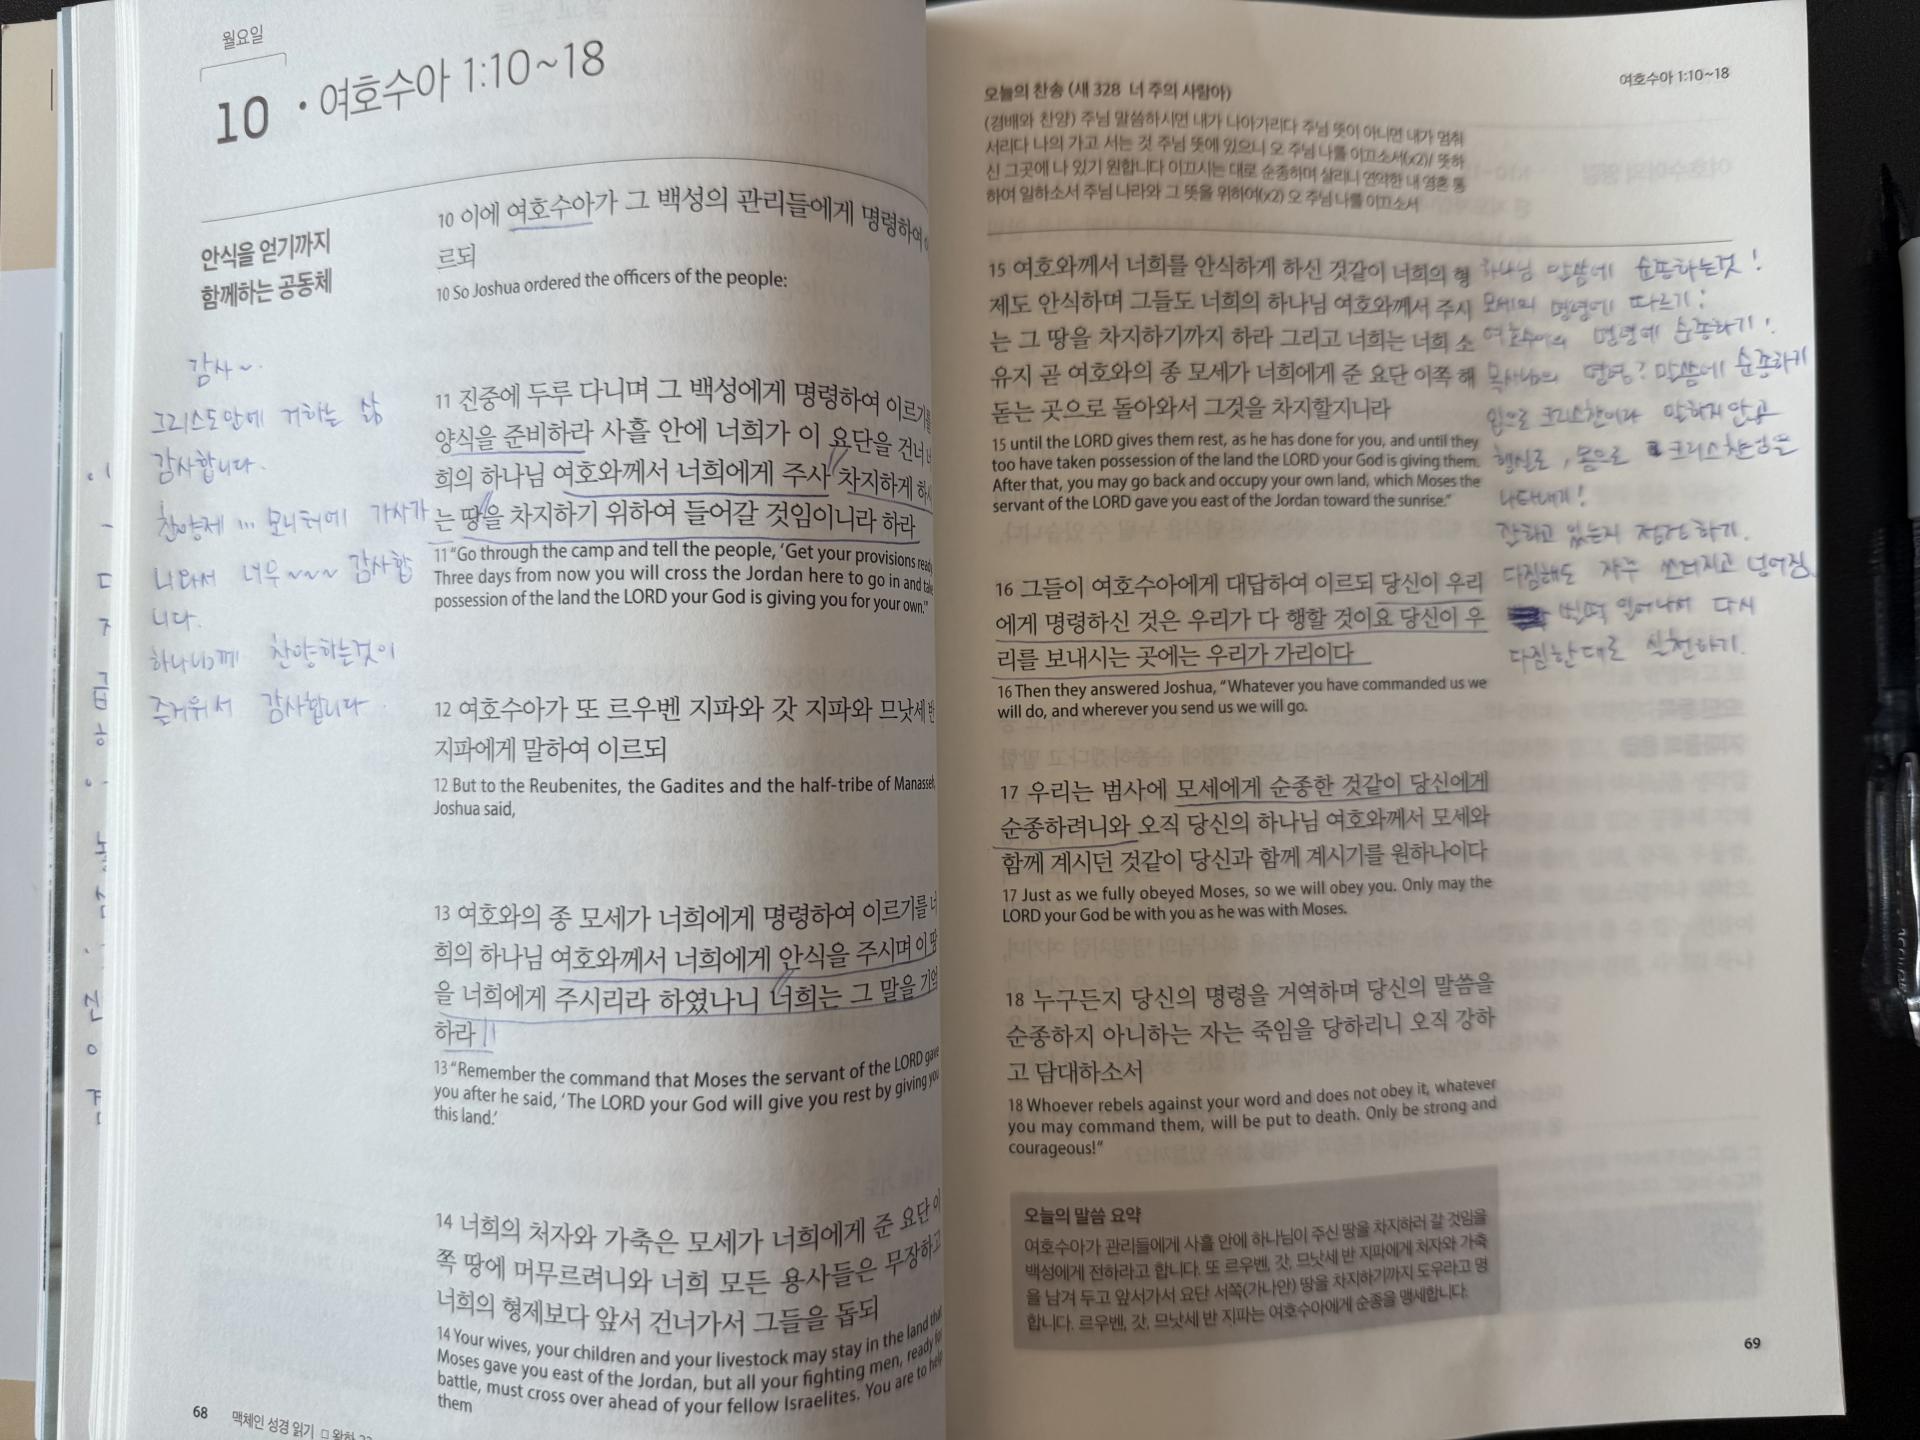 월요일
10 · 여호수아 1:10~18
안식을 얻기까지
함께하는 공동체
감사~
그리스도안에 거하는 삶
감사합니다.
찬양제 ... 모니터에 가사가
나와서 너무~~~ 감사합
니다.
하나님께 찬양하는것이
즐거워서 감사합니다.
10 이에 여호수아가 그 백성의 관리들에게 명령하여
르되
10 So Joshua ordered the officers of the people:
11 진중에 두루 다니며 그 백성에게 명령하여 이르기를
양식을 준비하라 사흘 안에 너희가 이 요단을 건너
희의 하나님 여호와께서 너희에게 주사 차지하게 하
는 땅을 차지하기 위하여 들어갈 것임이니라 하라
11 “Go through the camp and tell the people, ‘Get your provisions
Three days from now you will cross the Jordan here to go in and
possession of the land the LORD your God is giving you for your own.’”
12 여호수아가 또 르우벤 지파와 갓 지파와 므낫세 반
지파에게 말하여 이르되
12 But to the Reubenites, the Gadites and the half-tribe of Manasseh,
Joshua said,
13 여호와의 종 모세가 너희에게 명령하여 이르기를 너
희의 하나님 여호와께서 너희에게 안식을 주시며 이 땅
을 너희에게 주시리라 하였나니 너희는 그 말을 기억
하라
13 “Remember the command that Moses the servant of the LORD gave
you after he said, ‘The LORD your God will give you rest by giving you
this land.’
14 너희의 처자와 가축은 모세가 너희에게 준 요단 이
쪽 땅에 머무르려니와 너희 모든 용사들은 무장하고
너희의 형제보다 앞서 건너가서 그들을 돕되
14 Your wives, your children and your livestock may stay in the land that
Moses gave you east of the Jordan, but all your fighting men, ready for
battle, must cross over ahead of your fellow Israelites. You are to help
them
68 맥체인 성경 읽기 □ 왕하
여호수아 1:10~18
오늘의 찬송 (새 328 너 주의 사람아)
(경배와 찬양) 주님 말씀하시면 내가 나아가리다 주님 뜻이 아니면 내가 멈춰
서리다 나의 가고 서는 것 주님 뜻에 있으니 오 주님 나를 이끄소서(x2)/ 뜻하
신 그곳에 나 있기 원합니다 이끄시는 대로 순종하며 살리니 연약한 내 영혼 통
하여 일하소서 주님 나라와 그 뜻을 위하여(x2) 오 주님 나를 이끄소서
15 여호와께서 너희를 안식하게 하신 것같이 너희의 형
제도 안식하며 그들도 너희의 하나님 여호와께서 주시
는 그 땅을 차지하기까지 하라 그리고 너희는 너희 소
유지 곧 여호와의 종 모세가 너희에게 준 요단 이쪽 해
돋는 곳으로 돌아와서 그것을 차지할지니라
15 until the LORD gives them rest, as he has done for you, and until they
too have taken possession of the land the LORD your God is giving them.
After that, you may go back and occupy your own land, which Moses the
servant of the LORD gave you east of the Jordan toward the sunrise.”
16 그들이 여호수아에게 대답하여 이르되 당신이 우리
에게 명령하신 것은 우리가 다 행할 것이요 당신이 우
리를 보내시는 곳에는 우리가 가리이다
16 Then they answered Joshua, “Whatever you have commanded us we
will do, and wherever you send us we will go.
17 우리는 범사에 모세에게 순종한 것같이 당신에게
순종하려니와 오직 당신의 하나님 여호와께서 모세와
함께 계시던 것같이 당신과 함께 계시기를 원하나이다
17 Just as we fully obeyed Moses, so we will obey you. Only may the
LORD your God be with you as he was with Moses.
18 누구든지 당신의 명령을 거역하며 당신의 말씀을
순종하지 아니하는 자는 죽임을 당하리니 오직 강하
고 담대하소서
18 Whoever rebels against your word and does not obey it, whatever
you may command them, will be put to death. Only be strong and
courageous!“
하나님 말씀에 순종하는것!
모세의 명령에 따르기!
여호수아의 명령에 순종하기!
목사님의 명령? 말씀에 순종하기
입으로 크리스찬이라 말하지않고
행실로, 몸으로 크리스찬임을
나타내기!
잘하고 있는지 점검하기.
다짐해도 자주 쓰러지고 넘어짐.
벌떡 일어나서 다시
다짐한대로 실천하기.
오늘의 말씀 요약
여호수아가 관리들에게 사흘 안에 하나님이 주신 땅을 차지하러 갈 것임을
백성에게 전하라고 합니다. 또 르우벤, 갓, 므낫세 반 지파에게 처자와 가축
을 남겨 두고 앞서가서 요단 서쪽(가나안) 땅을 차지하기까지 도우라고 명
합니다. 르우벤, 갓, 므낫세 반 지파는 여호수아에게 순종을 맹세합니다.
69